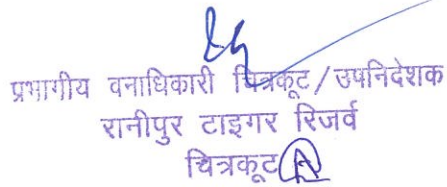 प्रभागीय वनाधिकारी चित्रकूट/उपनिदेशक
रानीपुर टाइगर रिजर्व
चित्रकूट